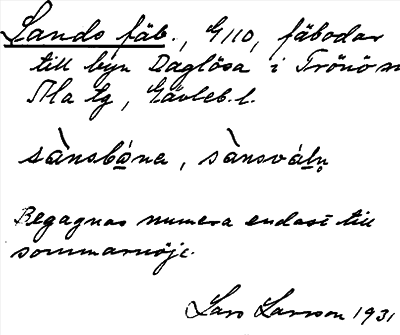 Sands fäb., G110, fäbodar
till byn Daglösa i Trönö sn
Ala tg, Gävleb. l.
sànsbo̲na, sànsválṇ
Begagnas numera endast till
sommarnöje.
Lars Larsson 1931